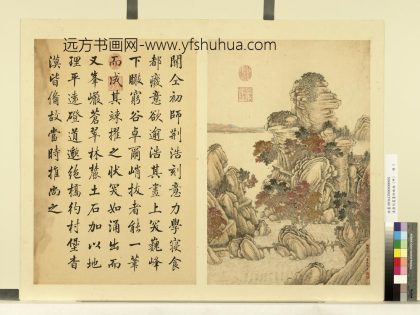 远方书画网-www.yfshuhua.com
關仝初師荆浩刻意力學寢食
都廢意欲逾浩其畫上突巍峰
下瞰窮谷卓爾峭拔者能一筆
而成其竦擢之狀突如涌出而
又峯巖蒼翠林麓土石加以地
理平遠磴道邈絕橋彴村堡杳
漠皆備故當時推尚之